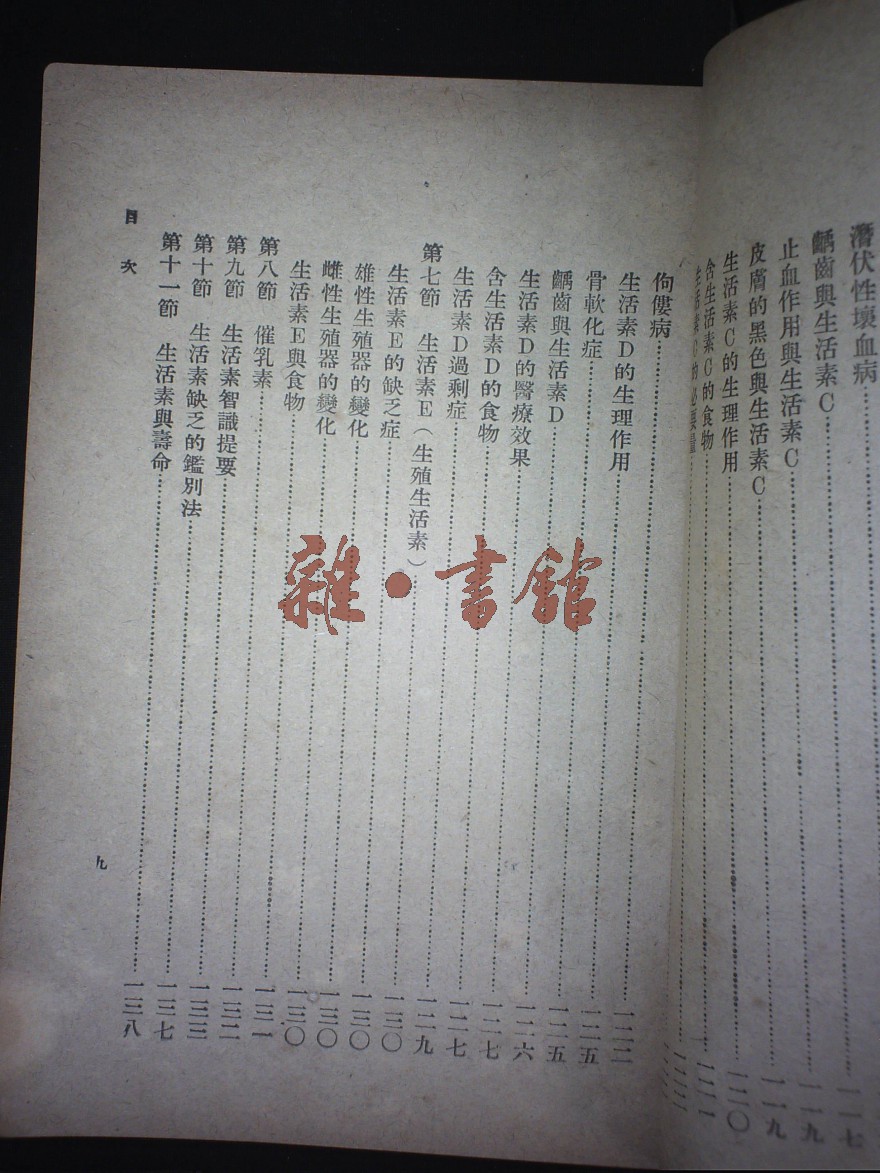 潛伏性壞血病
齲齒與生活素C……一一七
止血作用與生活素C……一一九
皮膚的黑色與生活素C……一一九
生活素C的生理作用……一二〇
含生活素C的食物……一二一
生活素C的必要量……
佝僂病……一二二
生活素D的生理作用……一二五
骨軟化症……一二五
齲齒與生活素D……一二六
生活素D的醫療效果……一二七
含生活素D的食物……一二七
生活素D過剩症……一二九
第七節 生活素E(生殖生活素)……一三〇
生活素E的缺乏症……一三〇
雄性生殖器的變化……一三〇
雌性生殖器的變化……一三〇
生活素E與食物……一三一
第八節 催乳素……一三二
第九節 生活素智識提要……一三三
第十節 生活素缺乏的鑑別法……一三七
第十一節 生活素與壽命……一三八
目次
九
雜·書館